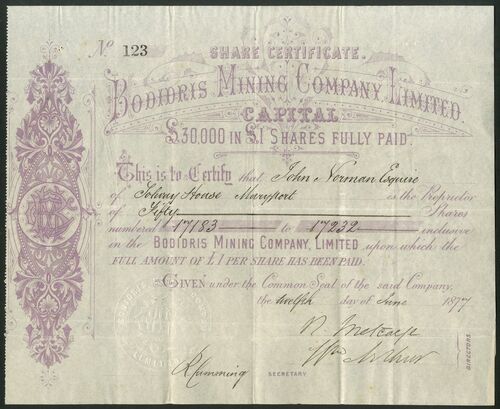 No 123
SHARE CERTIFICATE.
BODIDRIS MINING COMPANY, LIMITED.
CAPITAL
£30,000 IN £1 SHARES FULLY PAID.
This is to Certify that John Norman Esquire
of Solway House Maryport is the Proprietor
of Fifty Shares
numbered 17183 to 17232 inclusive
in the BODIDRIS MINING COMPANY, LIMITED upon which the
FULL AMOUNT OF £1 PER SHARE HAS BEEN PAID.
GIVEN under the Common Seal of the said Company,
the twelfth day of June 1877
R. Metcalfe
Cumming SECRETARY
DIRECTORS.
LIMITED